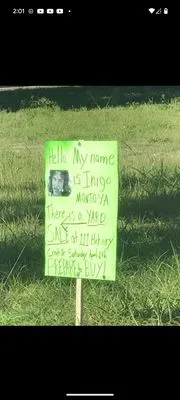 2:01
Hello My name
is Inigo
MONTOYA
There is a YARD
SALE at 111
Saturday April 6th
PREPARE to BUY!